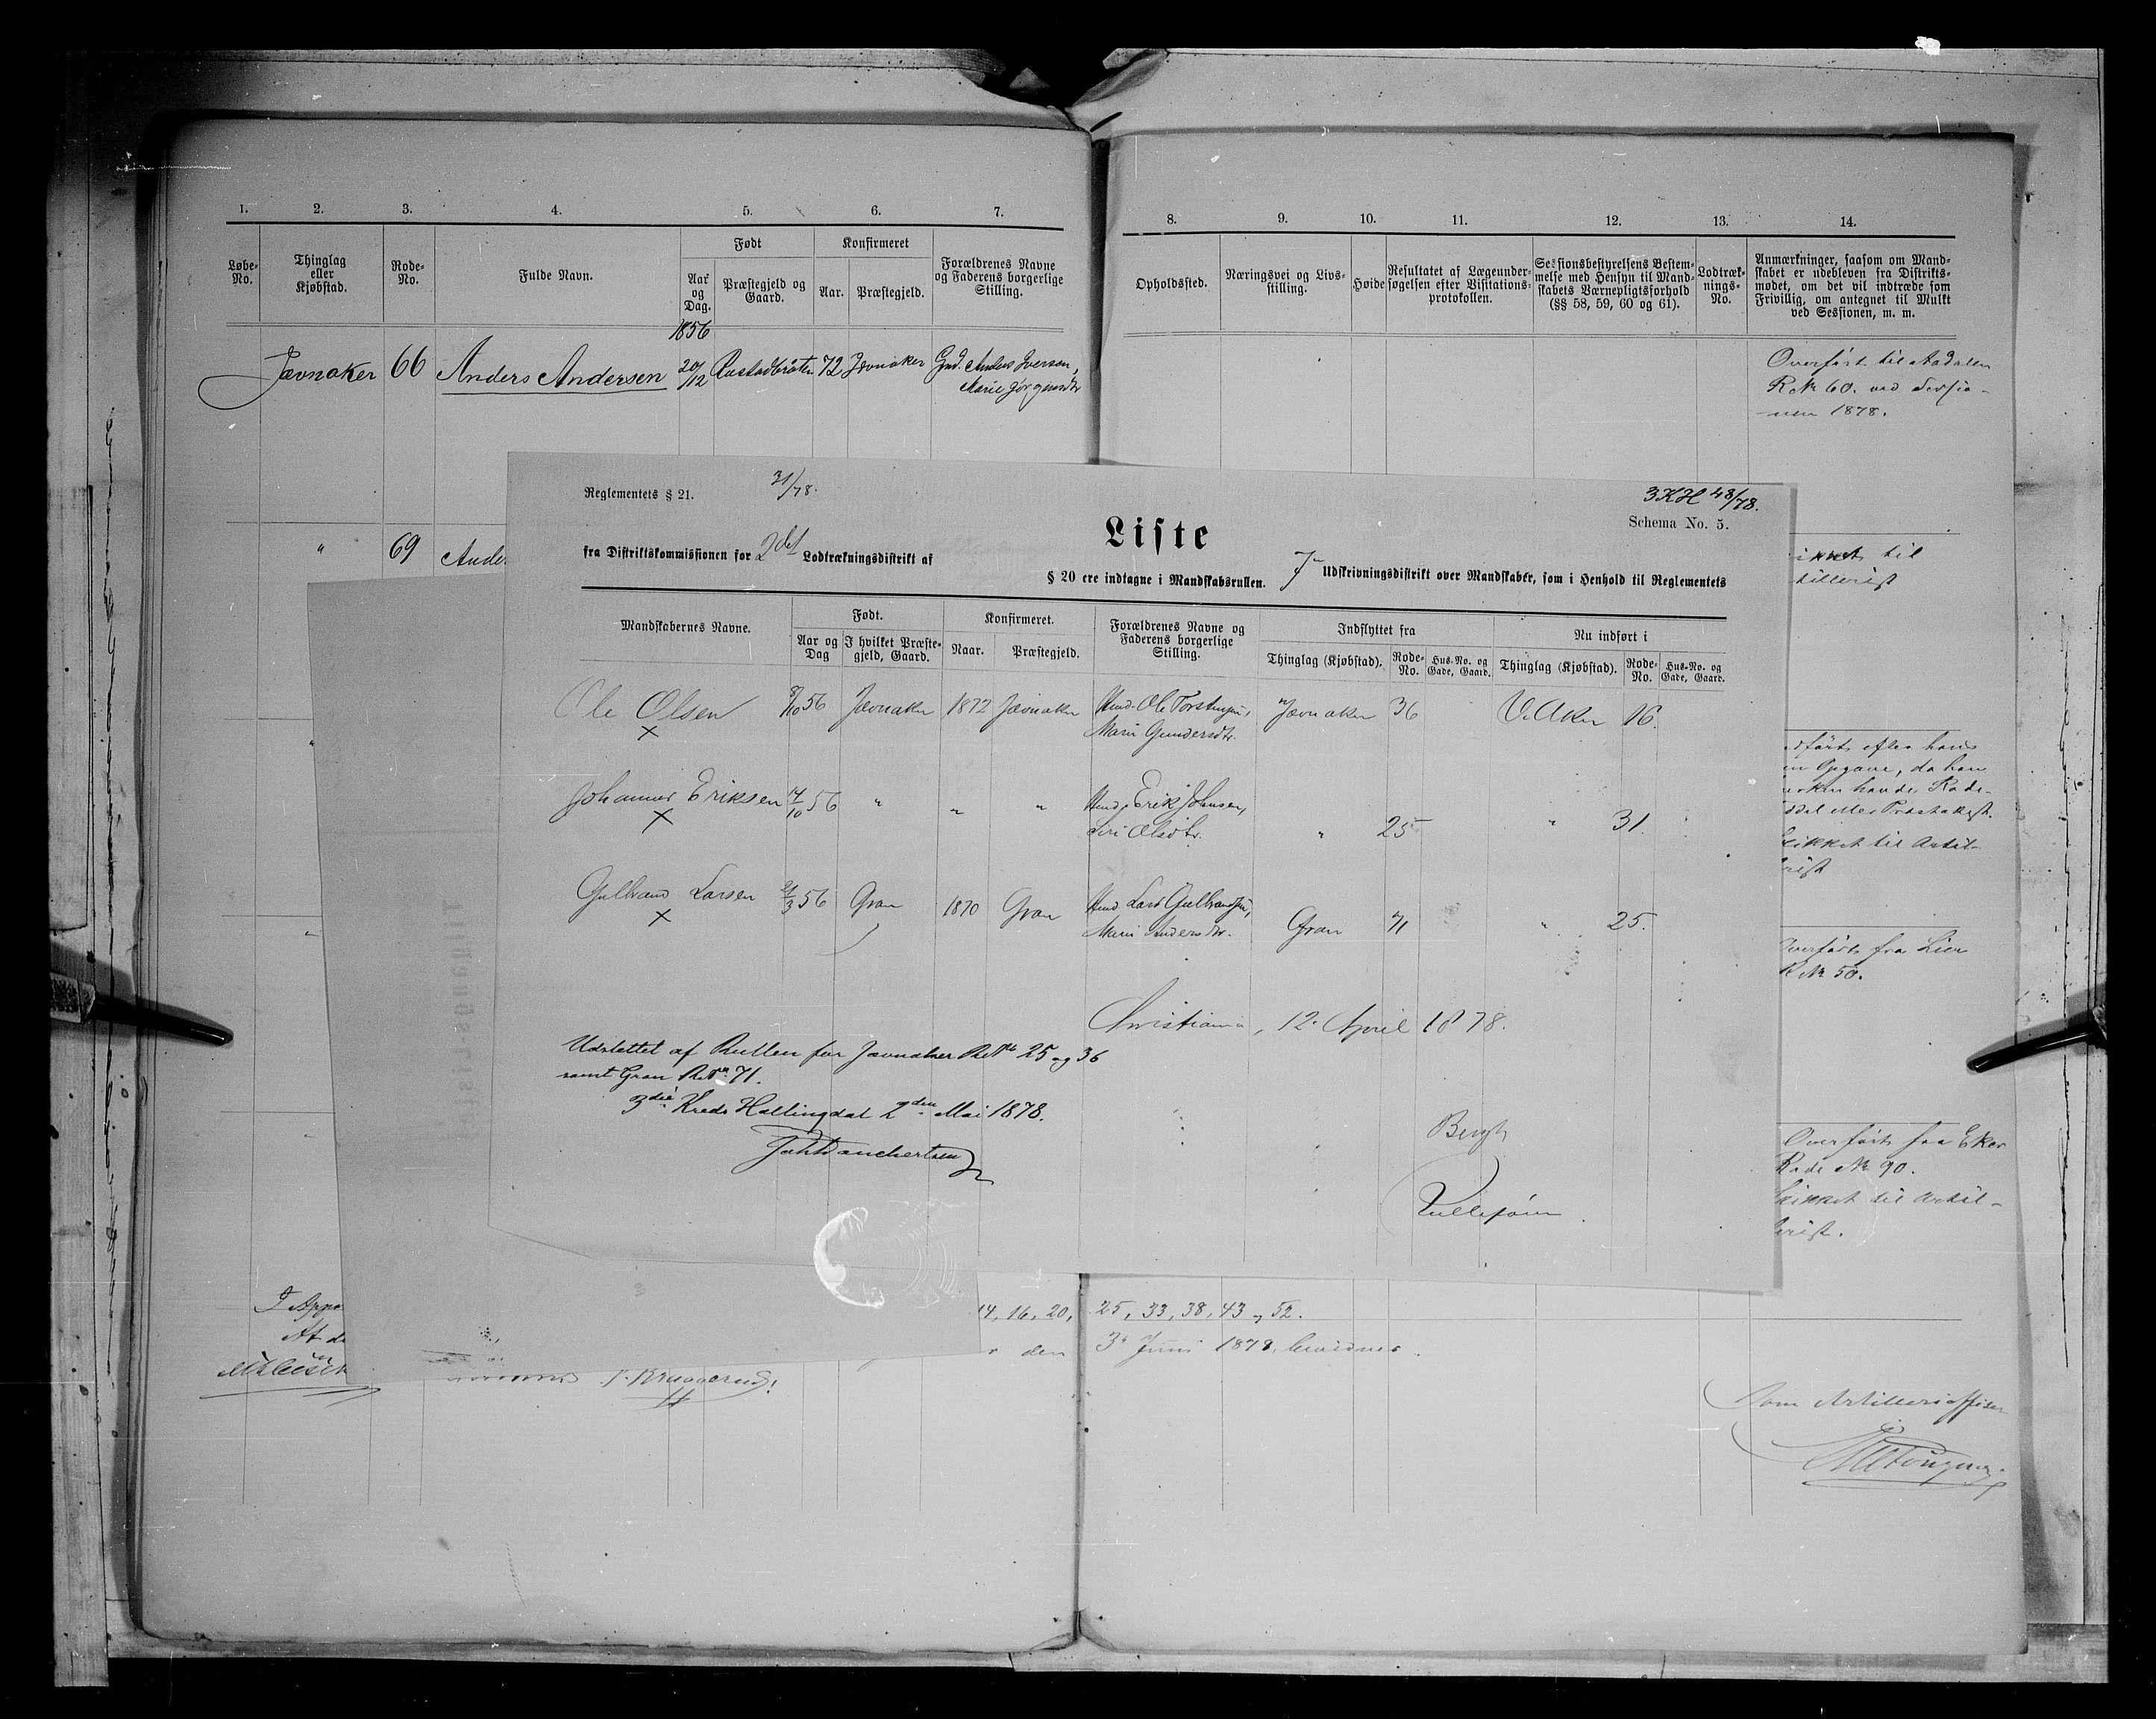 1. 2. 3. 4. 5. 6. 7.
Løbe-No. Thinglag eller Kjøbstad. Rode-No. Fulde Navn. Født Konfirmeret Forældrenes Navne og Faderens borgerlige Stilling.
Aar og Dag. Præstegjeld og Gaard. Aar. Præstegjeld.
1856
Jævnaker 66 Anders Andersen 20/12 Rustadbråten 72 Jævnaker Gmd. Anders Iversen,
Marie Jørgensdtr
" 69 Ander
8. 9. 10. 11. 12. 13. 14.
Opholdssted. Næringsvei og Livsstilling. Høide Resultatet af Lægeundersøgelsen efter Visitationsprotokollen. Sessionsbestyrelsens Bestemmelse med Hensyn til Mandskabets Værnepligtsforhold (§§ 58, 59, 60 og 61). Lodtræknings-No. Anmærkninger, saasom om Mandskabet er udebleven fra Distriktsmødet, om det vil indtræde som Frivillig, om antegnet til Mulkt ved Sessionen, m. m.
Overført til Aadalen
R. № 60. ved Sessio-
nen 1878.
Reglementets § 21. 31/78. 3KH 48/78.
Schema No. 5.
Liste
fra Distriktskommissionen for 2det Lodtrækningsdistrikt af 7 Udskrivningsdistrikt over Mandskaber, som i Henhold til Reglementets
§ 20 ere indtagne i Mandskabsrullen.
Mandskabernes Navne. Født. Konfirmeret. Forældrenes Navne og Faderens borgerlige Stilling. Indflyttet fra Nu indført i
Aar og Dag I hvilket Præstegjeld, Gaard. Naar. Præstegjeld. Thinglag (Kjøbstad). Rode-No. Hus-No. og Gade, Gaard. Thinglag (Kjøbstad). Rode-No. Hus-No. og Gade, Gaard.
Ole Olsen 8/10 56 Jævnaker 1872 Jævnaker Hmd. Ole Torstensen, Jævnaker 36 V. Aker 16.
x Mari Gundersdtr.
Johannes Eriksen 14/10 56 " " " Hmd. Erik Johnsen,
x Siri Olsdtr. " 25 " 31.
Gulbrand Larsen 21/3 56 Gran 1870 Gran Hmd Lars Gulbrandsen,
x Mari Andersdtr. Gran 71 " 25.
Christiania, 12. April 1878.
Udslettet af Rullen for Jævnaker R. No 25 og 36
samt Gran R. No 71.
3die Kreds Hallingdal 2den Mai 1878.
Bergh
til
tillerist
dført efter hans
Opgave, da han
hverken havde Rode-
eller Præsteattest.
ikket til Artil-
rist
Overført fra Lier
R № 50.
Overført fra Eker
Rode № 90.
ikket til Artil-
lerist.
I Appe
At de
14, 16, 20, 25, 33, 38, 43 og 52.
den 3 Juni 1878, bevidnes.
Som Artilleriofficer